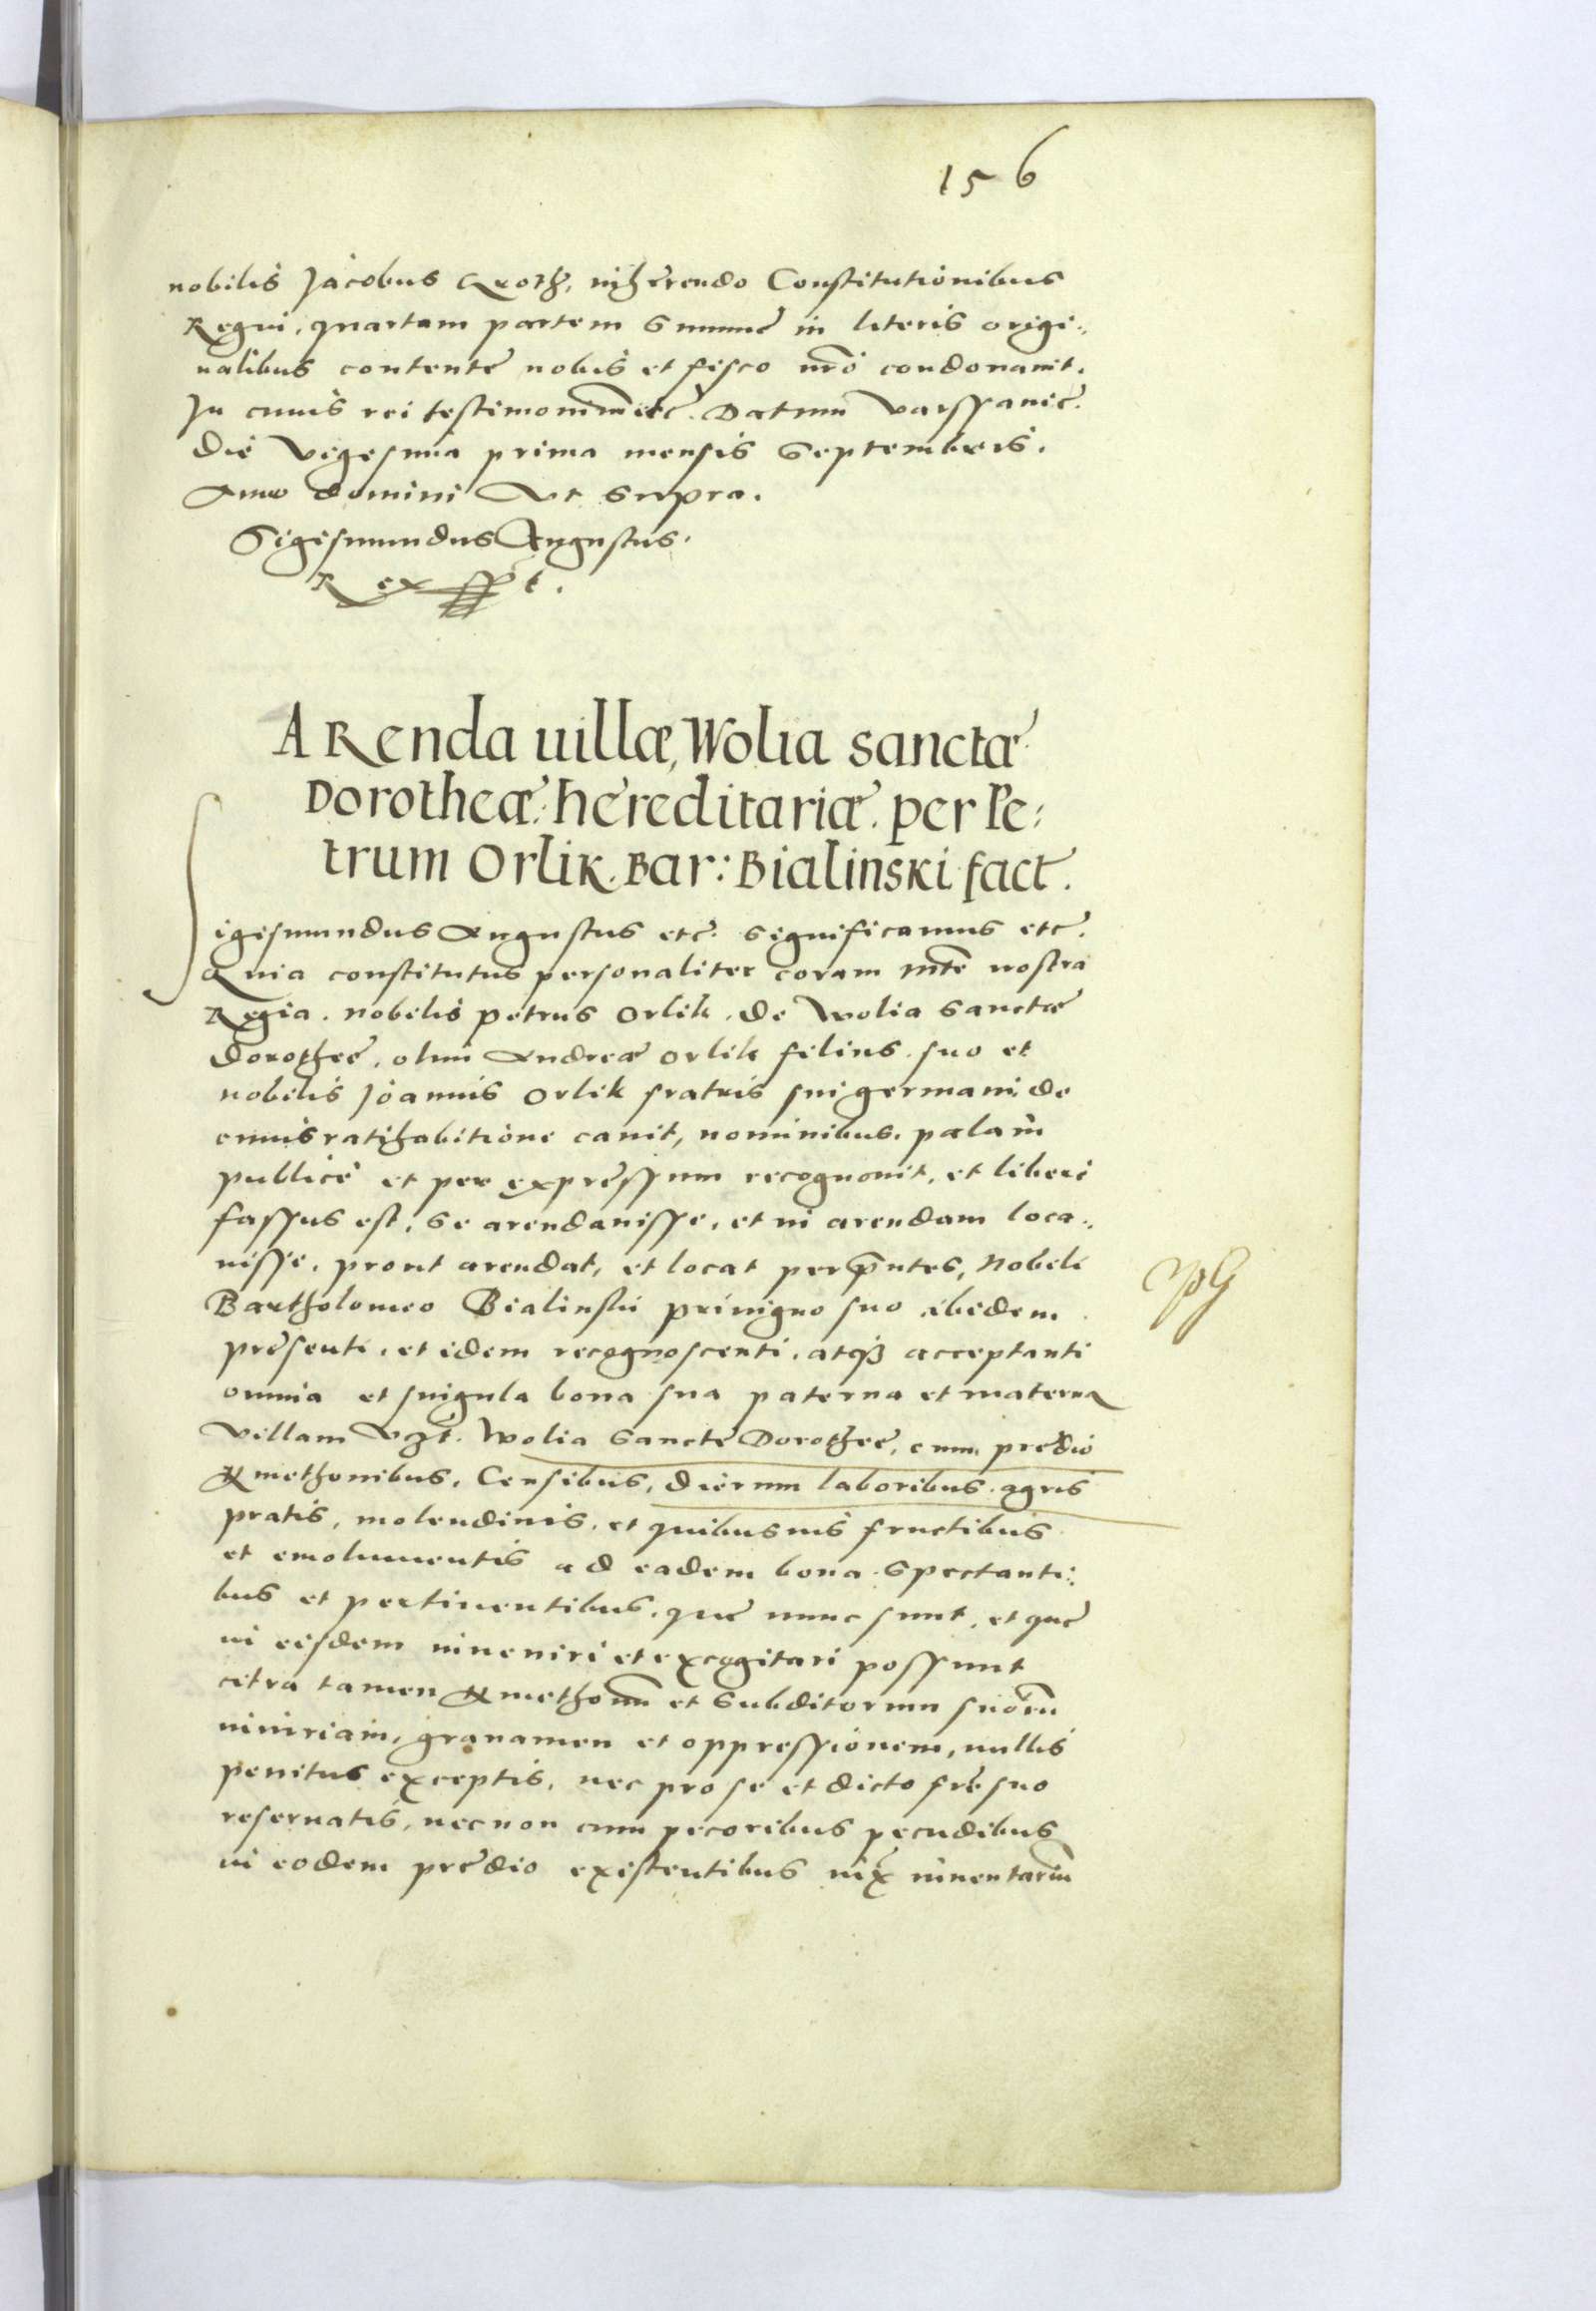 156
nobilis Jacobus Kroth, inherendo Constitutionibus
Regni, quartam partem Summe in literis origi„
nalibus contente nobis et fisco nrō condonauit.
In cuius rei testimonium etc. Datum Varssauie.
die Vigesima prima mensis Septembris.
Anno domini Vt supra.
Sigismundus Augustus.
Rex sspt.
Arenda uillæ, Wolia sanctæ
Dorotheæ hereditariæ per Pe:
trum Orlik. Bar: Bialinski fact.
Sigismundus Augustus etc. Significamus etc.
Quia constitutus personaliter coram Mte nostra
Regia. Nobilis Petrus Orlik. de Wolia Sanctæ
Dorothee. olim Andreæ Orlik filius. suo et
nobilis Joannis Orlik fratris sui germani, de
cuius ratihabitione cauit, nominibus. palam
publice et per expressum recognouit. et libere
fassus est, se arendauisse, et in arendam loca„
uisse, prout arendat, et locat per pntes, Nobili
Bartholomeo Bialinski priuigno suo ibidem
presenti. et idem recognoscenti, atq3 acceptanti
omnia et singula bona sua paterna et materna
Villam vzt. Wolia Sancte Dorothee, cum predio
Kmethonibus, Censibus, dierum laboribus. agris
pratis, molendinis, et quibusuis fructibus
et emolumentis ad eadem bona spectanti„
bus et pertinentibus. que nunc sunt, et que
in eisdem inueniri et excogitari possunt
citra tamen Kmethonū et Subditorum suorū
iniuriam, grauamen et oppressionem, nullis
penitus exceptis, nec pro se et dicto frē suo
reseruatis, necnon cum pecoribus pecudibus
in eodem predio existentibus iux inuentariū